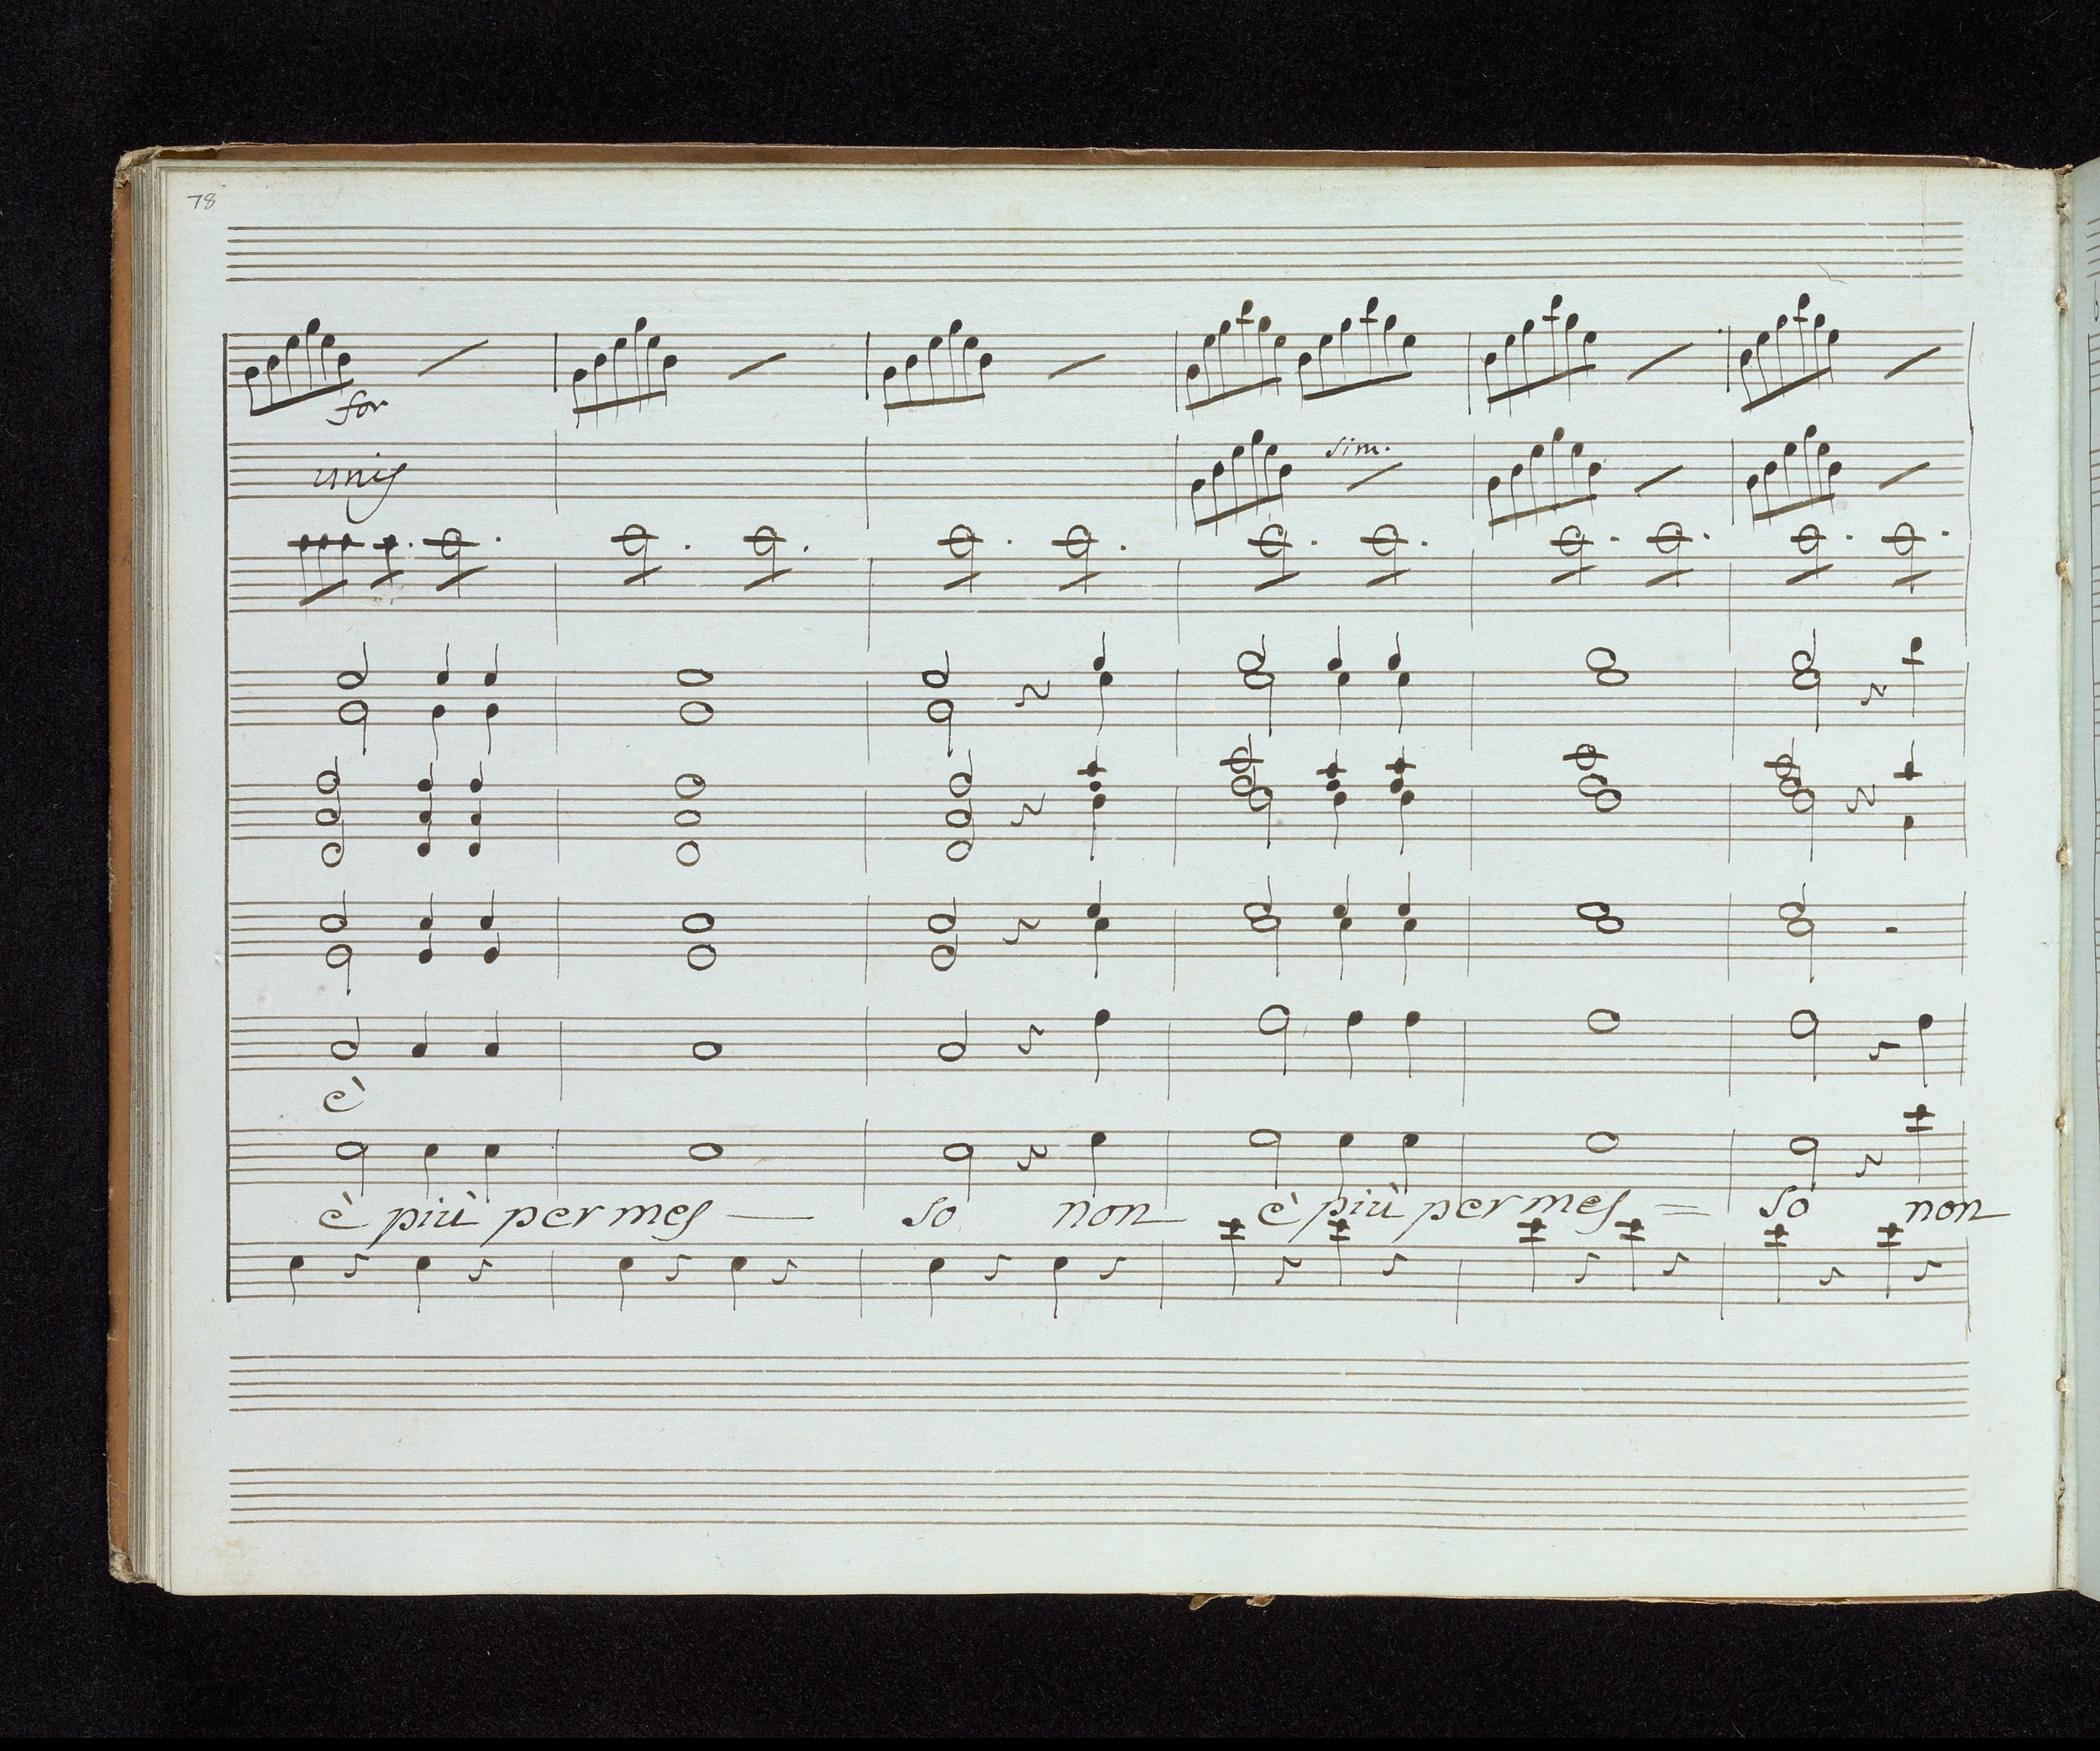 78
for
unis
sim.
è
è più permes — so non è più permes = so non